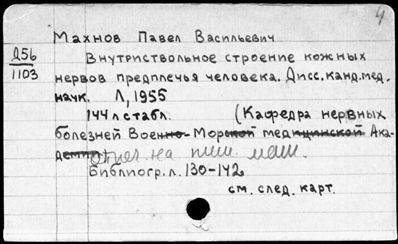 4
Махнов Павел Васильевич
Д56
1103
Внутриствольное строение кожных
нервов предплечья человека. Дисс.канд.мед.
наук. Л, 1955
144 л с табл. (Кафедра нервных
болезней Военно-Морской медицинской Ака-
демии) отпеч. на пиш. маш.
Библиогр. л. 130-142
см. след. карт.